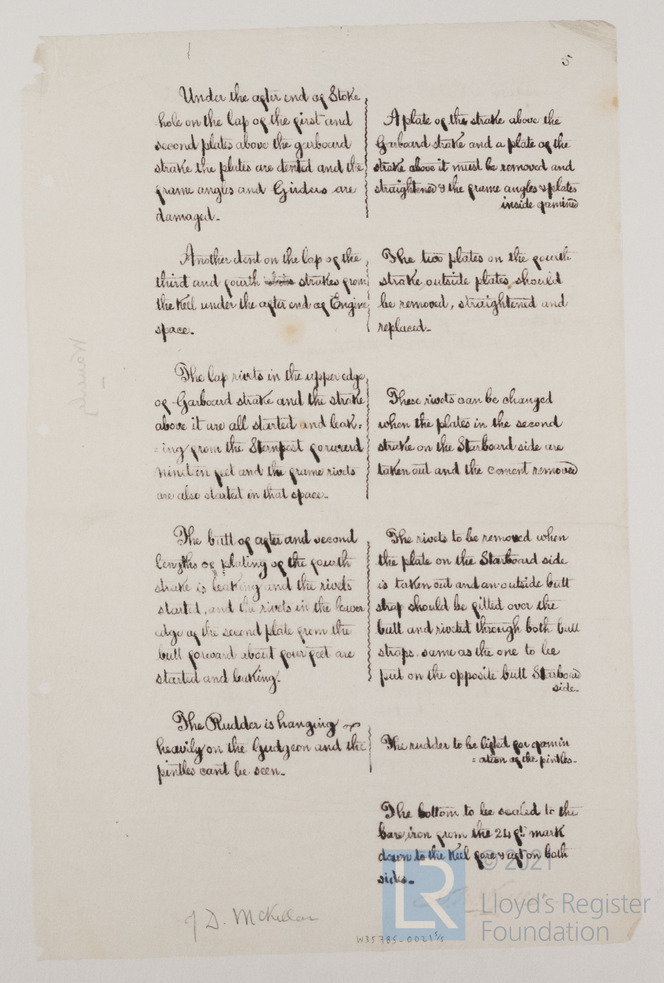 5
Under the after end of Stoke
hole on the lap of the first and
second plates above the garboard
strake the plates are dented and the
frame angus and Girders are
damaged.
A plate of the strake above the
Garboard strake and a plate of the
strake above it must be removed and
straightened & the frame angles & plates
inside examined
Another dent on the lap of the
third and fourth strakes from
the Keel under the after end of Engine
space.
The two plates on the fourth
strake outside plates should
be removed, straightened and
replaced.
The lap rivets in the upper edge
of Garboard strake and the strake
above it are all started and leak=
=ing from the Sternpost forward
nineteen feet and the frame rivets
are also started in that space.
These rivets can be changed
when the plates in the second
strake on the Starboard side are
taken out and the cement removed
The butt of after and second
lengths of plating of the fourth
strake is leaking and the rivets
started, and the rivets in the lower
edge of the second plate from the
butt forward about four feet are
started and leaking.
The rivets to be removed when
the plate on the Starboard side
is taken out and an outside butt
strap should be fitted over the
butt and riveted through both butt
straps. same as the one to be
put on the opposite butt Starboard
side.
The Rudder is hanging
heavily on the Gudgeon and the
pintles cant be seen.
The rudder to be lifted for examin
=ation of the pintles.
The bottom to be scaled to the
bare iron from the 24 ft mark
down to the Keel fore & aft on both
sides.
J D. McKellar
W35785-0021
© 2021
LR
Lloyd's Register
Foundation